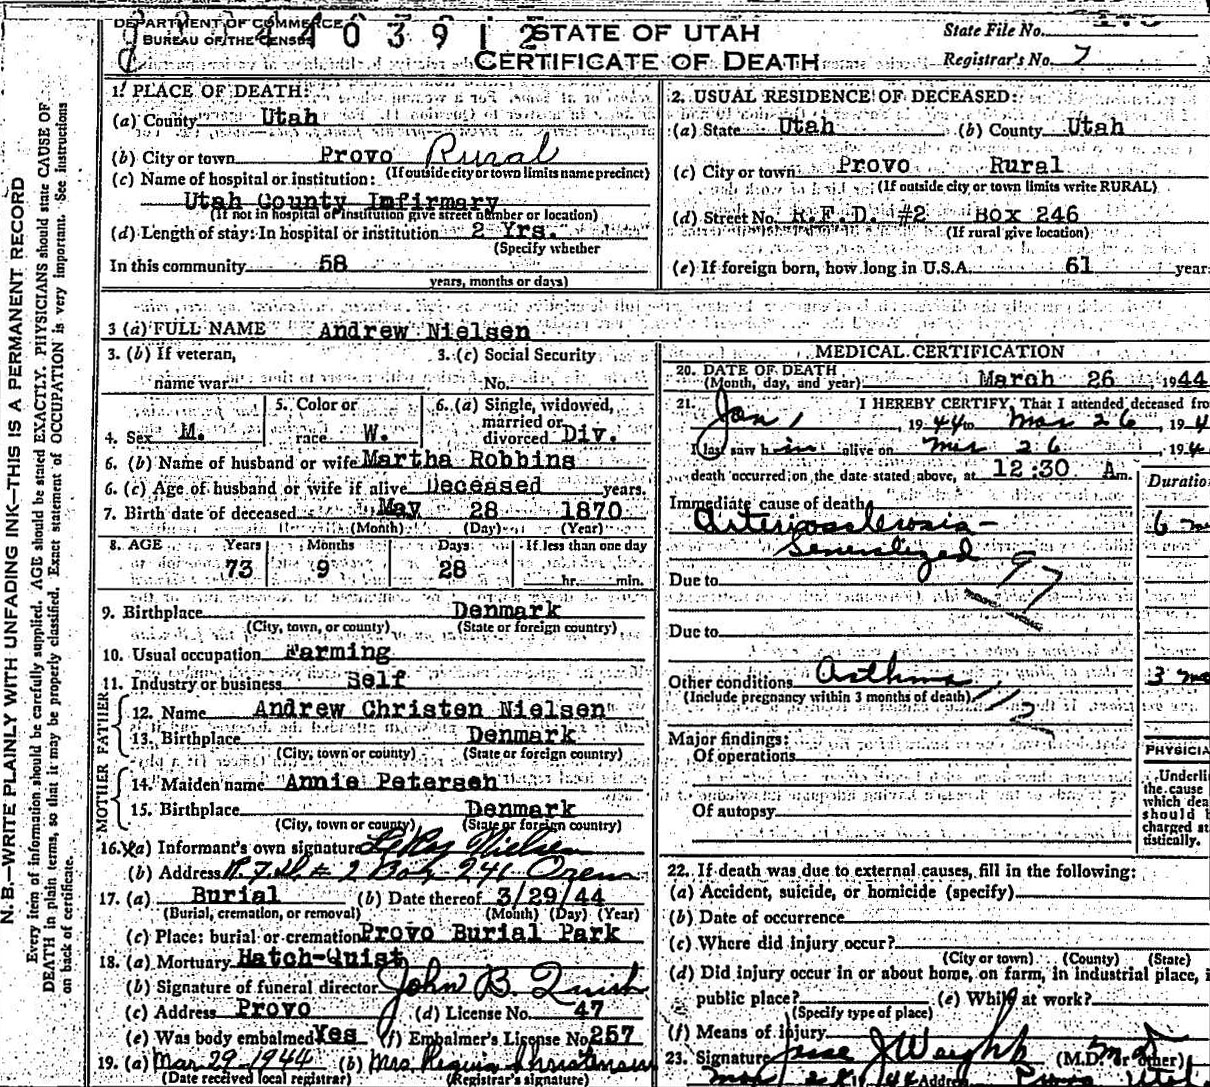 DEPARTMENT OF COMMERCE
BUREAU OF THE CENSUS
STATE OF UTAH
CERTIFICATE OF DEATH
State File No.
Registrar's No. 7
N. B.—WRITE PLAINLY WITH UNFADING INK—THIS IS A PERMANENT RECORD
Every item of information should be carefully supplied. AGE should be stated EXACTLY. PHYSICIANS should state CAUSE OF
DEATH in plain terms, so that it may be properly classified. Exact statement of OCCUPATION is very important. See instructions
on back of certificate.
1. PLACE OF DEATH:
(a) County Utah
(b) City or town Provo Rural
(If outside city or town limits name precinct)
(c) Name of hospital or institution:
Utah County Imfirmary
(If not in hospital or institution give street number or location)
(d) Length of stay: In hospital or institution 2 Yrs.
(Specify whether
In this community 58
years, months or days)
2. USUAL RESIDENCE OF DECEASED:
(a) State Utah (b) County Utah
(c) City or town Provo Rural
(If outside city or town limits write RURAL)
(d) Street No. R.F.D. #2 Box 246
(If rural give location)
(e) If foreign born, how long in U.S.A. 61 year
3 (a) FULL NAME Andrew Nielsen
3. (b) If veteran,
name war
3. (c) Social Security
No.
4. Sex M.
5. Color or
race W.
6. (a) Single, widowed,
married or
divorced Div.
6. (b) Name of husband or wife Martha Robbins
6. (c) Age of husband or wife if alive Deceased years.
7. Birth date of deceased May 28 1870
(Month) (Day) (Year)
8. AGE Years Months Days If less than one day
73 9 28 hr. min.
9. Birthplace Denmark
(City, town, or county) (State or foreign country)
10. Usual occupation Farming
11. Industry or business Self
FATHER
12. Name Andrew Christen Nielsen
13. Birthplace Denmark
(City, town or county) (State or foreign country)
MOTHER
14. Maiden name Annie Petersen
15. Birthplace Denmark
(City, town or county) (State or foreign country)
16. (a) Informant's own signature LeRoy Nielsen
(b) Address R.F.D # 2 Box 241 Orem
17. (a) Burial (b) Date thereof 3/29/44
(Burial, cremation, or removal) (Month) (Day) (Year)
(c) Place: burial or cremation Provo Burial Park
18. (a) Mortuary Hatch-Quist
(b) Signature of funeral director John B. Quish
(c) Address Provo (d) License No. 47
(e) Was body embalmed Yes (f) Embalmer's License No 257
19. (a) Mar. 29-1944 (b) Mrs
(Date received local registrar) (Registrar's signature)
MEDICAL CERTIFICATION
20. DATE OF DEATH
(Month, day, and year) March 26 1944
21. I HEREBY CERTIFY, That I attended deceased fro
Jan 1, 1944 to Mar 26, 194
I last saw him alive on Mar 26, 194
death occurred on the date stated above, at 12:30 A m.
Duratio
Immediate cause of death
Arteriosclerosis- 6 m
Generalized
97
Due to
Due to
Other conditions Asthma 3 mo
(Include pregnancy within 3 months of death)
112
Major findings:
Of operations
Of autopsy
PHYSICIA
Underli
the cause
which dea
should b
charged st
tistically.
22. If death was due to external causes, fill in the following:
(a) Accident, suicide, or homicide (specify)
(b) Date of occurrence
(c) Where did injury occur?
(City or town) (County) (State)
(d) Did injury occur in or about home, on farm, in industrial place, i
public place? (e) While at work?
(Specify type of place)
(f) Means of injury
23. Signature Jesse J Weight (M.D. or other)
Mar 28 1944 Address Provo Utah